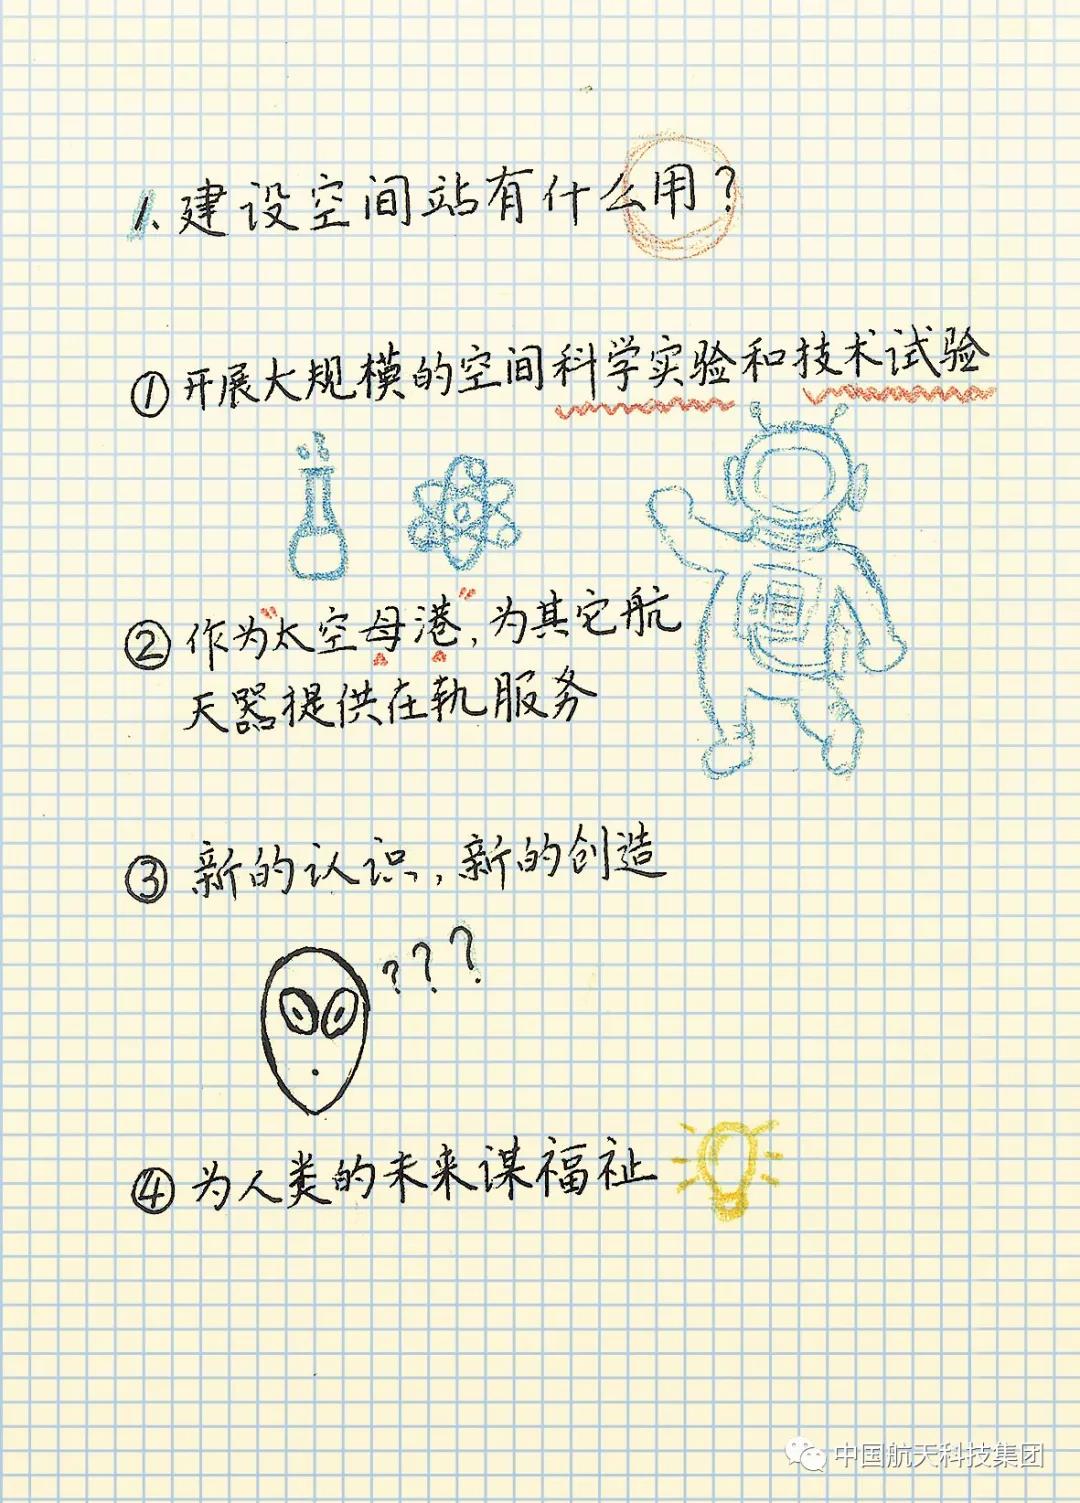 1、建设空间站有什么用?
①开展大规模的空间科学实验和技术试验
②作为"太空母港",为其它航
天器提供在轨服务
③新的认识,新的创造
???
④为人类的未来谋福祉
中国航天科技集团